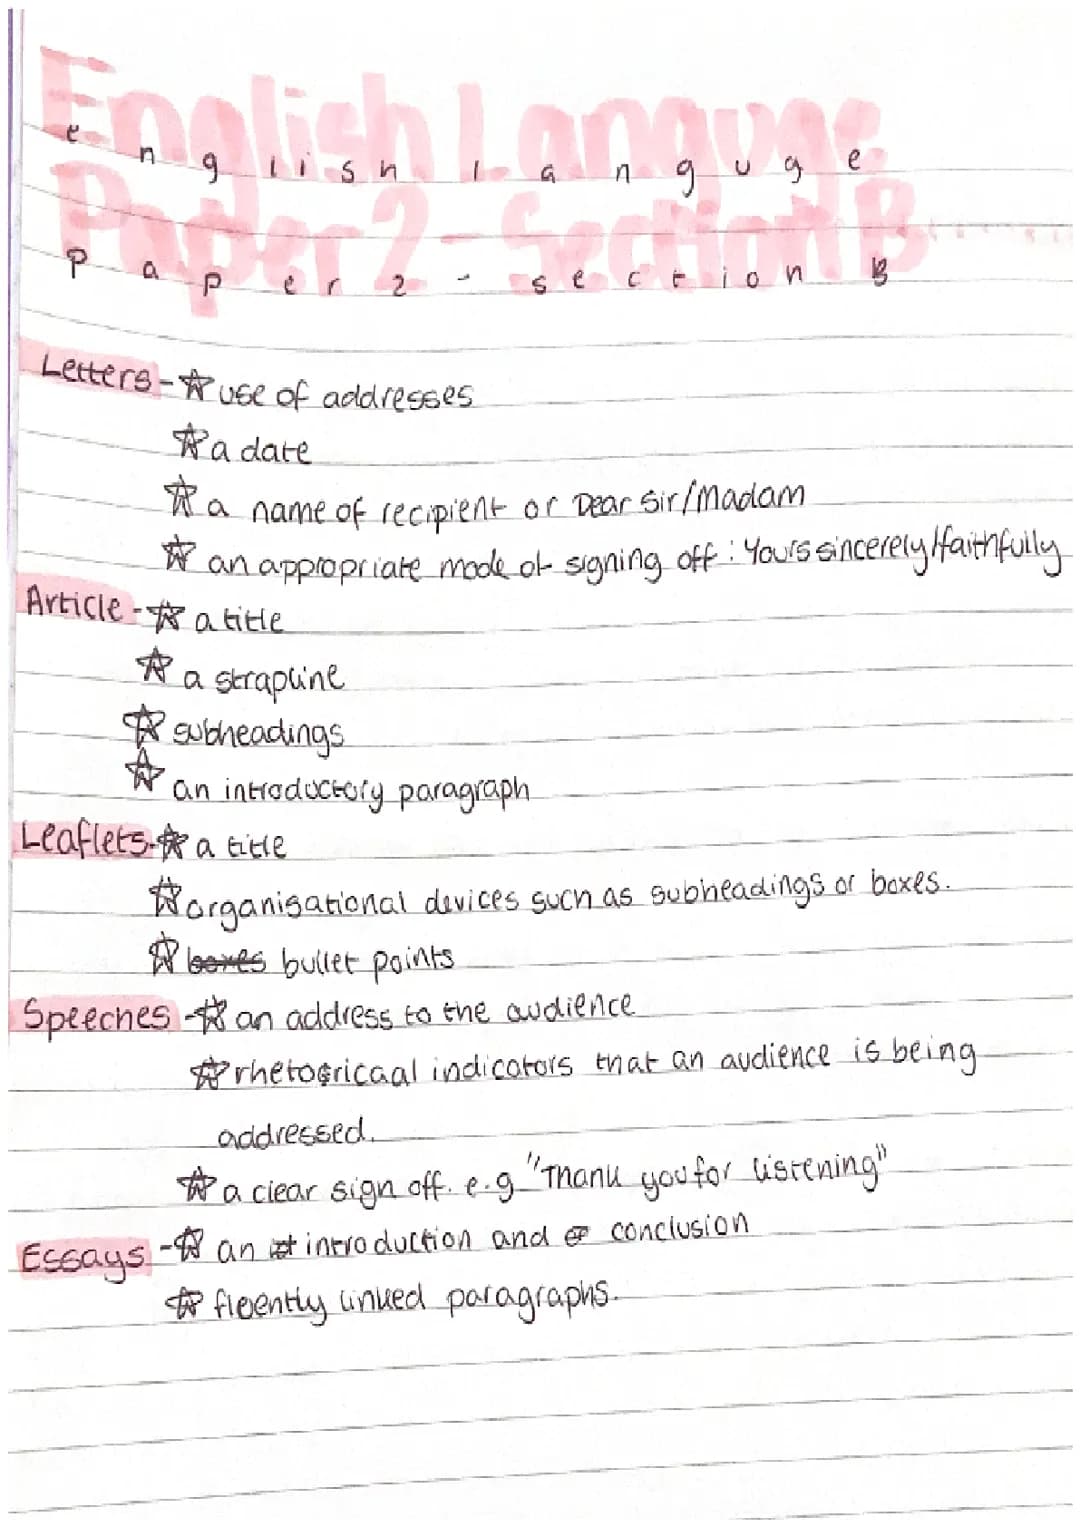 English Languge
e n g l i s h l a n g u g e
Paper 2 - Section B
p a p e r 2 - s e c t i o n B
Letters - ☆ use of addresses
☆ a date
☆ a name of recipient or Dear Sir/Madam
☆ an appropriate mode of signing off : Yours sincerely/faithfully
Article - ☆ a title
☆ a strapline
☆ subheadings
☆ an introductory paragraph
Leaflets - ☆ a title
☆ organisational devices such as subheadings or boxes.
☆ boxes bullet points
Speeches - ☆ an address to the audience
☆ rhetoricaal indicators that an audience is being
addressed.
☆ a clear sign off. e.g "Thank you for listening"
Essays - ☆ an introduction and conclusion
☆ fluently linked paragraphs.